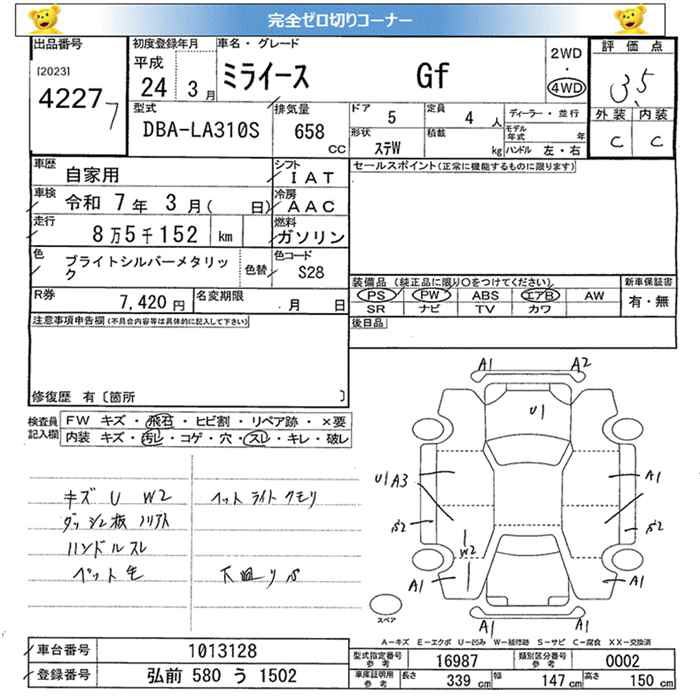 完全ゼロ切りコーナー
出品番号 初度登録年月 車名・グレード 評価点
[2023] 平成 2WD
42277 24年 3月 ミライース Gf ・ 3.5
4WD
型式 排気量 ドア 5 定員 4人 ディーラー・並行 外装 内装
DBA-LA310S 658 CC 形状 ステW 積載 kg モデル年式 年 C C
ハンドル 左・右
車歴 自家用 シフト IAT セールスポイント(正常に機能するものに限ります)
車検 令和 7年 3月( 日) 冷房 AAC
走行 8万5千152 km 燃料 ガソリン
色 ブライトシルバーメタリック 色替 色コード S28
R券 7,420円 名変期限 月 日 装備品 (純正品に限り○をつけてください) 新車保証書
PS PW ABS エアB AW 有・無
SR ナビ TV カワ
注意事項申告欄(不具合内容等は具体的に記入して下さい) 後日品
修復歴 有〔箇所 〕
検査員記入欄 FW キズ・飛石・ヒビ割・リペア跡・×要
内装 キズ・汚レ・コゲ・穴・スレ・キレ・破レ
A1 A2
U1
キズ U W2 ヘットライトクモリ U1 A3 A1
ダッシュ板 ノリアト
ハンドルスレ W2
ペット毛 下廻りサ A1 A1
スペア A1 A1
A－キズ E－エクボ U－凹み W－補修跡 S－サビ C－腐食 XX－交換済
車台番号 1013128 型式指定番号 参考 16987 類別区分番号 参考 0002
登録番号 弘前 580 う 1502 車庫証明用 参考 長さ 339 cm 幅 147 cm 高さ 150 cm